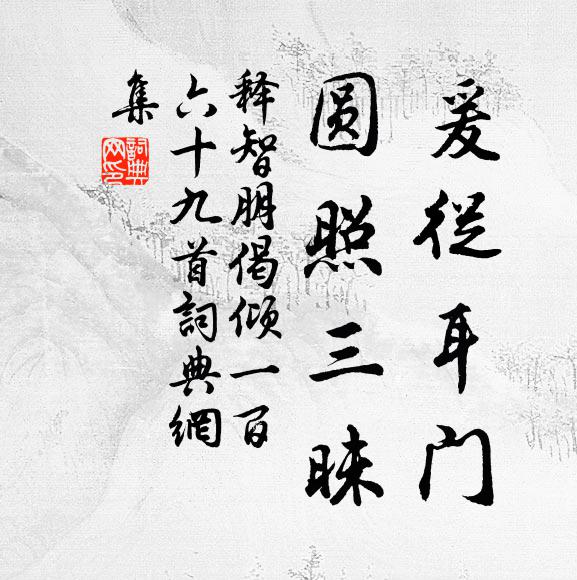 爰從耳门
圓照三昧
释智朋偈傾一百
六十九首詞典網
集
詞典
网印